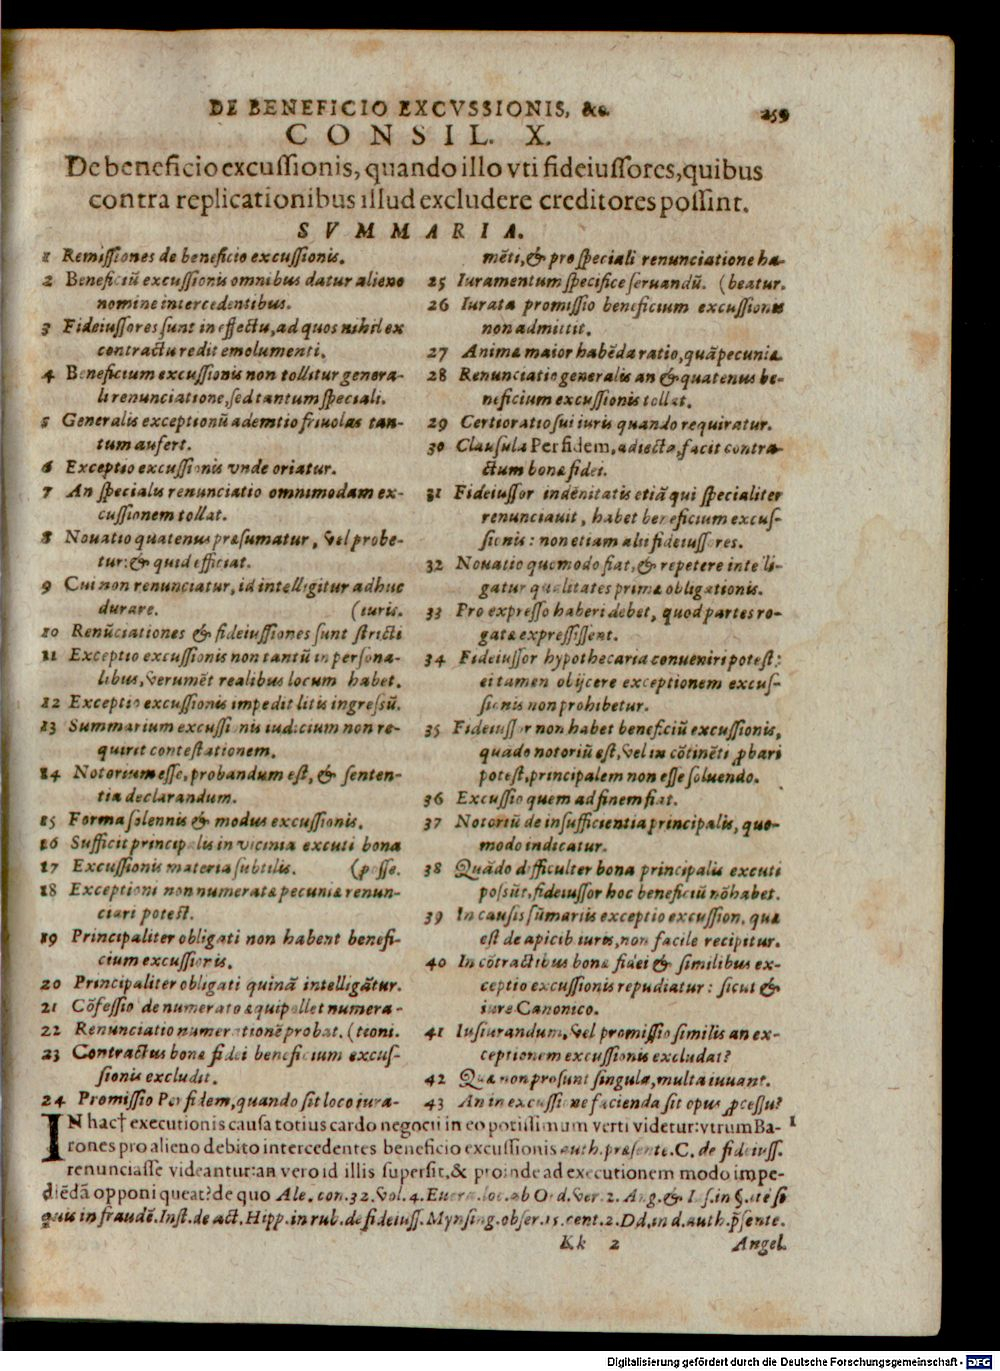 DE BENEFICIO EXCVSSIONIS, &c. 259
CONSIL. X.
De beneficio excussionis, quando illo vti fideiussores, quibus
contra replicationibus illud excludere creditores possint.
SVMMARIA.
1 Remissiones de beneficio excussionis.
2 Beneficiũ excussionis omnibus datur alieno
nomine intercedentibus.
3 Fideiussores sunt in effectu, ad quos nihil ex
contractu redit emolumenti.
4 Beneficium excussionis non tollitur genera-
li renunciatione, sed tantum speciali.
5 Generalis exceptionũ ademtio friuolas tan-
tum aufert.
6 Exceptio excussionis vnde oriatur.
7 An specialis renunciatio omnimodam ex-
cussionem tollat.
8 Nouatio quatenus præsumatur, vel probe-
tur: & quid efficiat.
9 Cui non renunciatur, id intelligitur adhuc
durare. (iuris.
10 Renũciationes & fideiussiones sunt stricti
11 Exceptio excussionis non tantũ in persona-
libus, verumẽt realibus locum habet.
12 Exceptio excussionis impedit litis ingressũ.
13 Summarium excussionis iudicium non re-
quirit contestationem.
14 Notorium esse, probandum est, & senten-
tia declarandum.
15 Forma solennis & modus excussionis.
16 Sufficit principalis in vicinia excuti bona
17 Excussionis materia subtilis. (posse.
18 Exceptioni non numeratæ pecuniæ renun-
ciari potest.
19 Principaliter obligati non habent benefi-
cium excussionis.
20 Principaliter obligati quinã intelligãtur.
21 Cõfessio de numerato æquipollet numera-
22 Renunciatio numerationẽ probat. (tioni.
23 Contractus bonæ fidei beneficium excus-
sionis excludit.
24 Promissio Per fidem, quando sit loco iura-
mẽti, & pro speciali renunciatione ha-
25 Iuramentum specifice seruandũ. (beatur.
26 Iurata promissio beneficium excussionis
non admittit.
27 Animæ maior habẽda ratio, quã pecuniæ.
28 Renunciatio generalis an & quatenus be-
neficium excussionis tollat.
29 Certioratio sui iuris quando requiratur.
30 Clausula Per fidem, adiecta, facit contra-
ctum bonæ fidei.
31 Fideiussor indẽnitatis etiã qui specialiter
renunciauit, habet beneficium excus-
sionis: non etiam alii fideiussores.
32 Nouatio quomodo fiat, & repetere intelli-
gatur qualitates primæ obligationis.
33 Pro expresso haberi debet, quod partes ro-
gatæ expressissent.
34 Fideiussor hypothecaria conueniri potest:
ei tamen obijcere exceptionem excus-
sionis non prohibetur.
35 Fideiussor non habet beneficiũ excussionis,
quado notoriũ est, vel in cõtinẽti ꝓbari
potest, principalem non esse soluendo.
36 Excussio quem ad finem fiat.
37 Notoriũ de insufficientia principalis, quo-
modo indicatur.
38 Quãdo difficulter bona principalis excuti
possũt, fideiussor hoc beneficiũ nõ habet.
39 In causis sũmariis exceptio excussion. quæ
est de apicib iuris, non facile recipitur.
40 In cõtractibus bonæ fidei & similibus ex-
ceptio excussionis repudiatur: sicut &
iure Canonico.
41 Iusiurandum, vel promissio similis an ex-
ceptionem excussionis excludat?
42 Quæ non prosunt singula, multa iuuant.
43 An in excussione facienda sit opus ꝓcessu?
IN hac† executionis causa totius cardo negocii in eo potissimum verti videtur: vtrum Ba- 1
rones pro alieno debito intercedentes beneficio excussionis auth. præsente. C. de fideiuss.
renunciasse videantur: an vero id illis supersit, & proinde ad executionem modo impe-
diẽdã opponi queat? de quo Ale. con. 32. vol. 4. Eucra. loc. ab Ord. ver. 2. Ang. & Ias. in §. ite si
quis in fraudẽ. Inst. de act. Hipp. in rub. de fideiuss. Mynsing. obser. 15. cent. 2. Dd. in d. auth. p̃sente.
Kk 2 Angel.
Digitalisierung gefördert durch die Deutsche Forschungsgemeinschaft - DFG